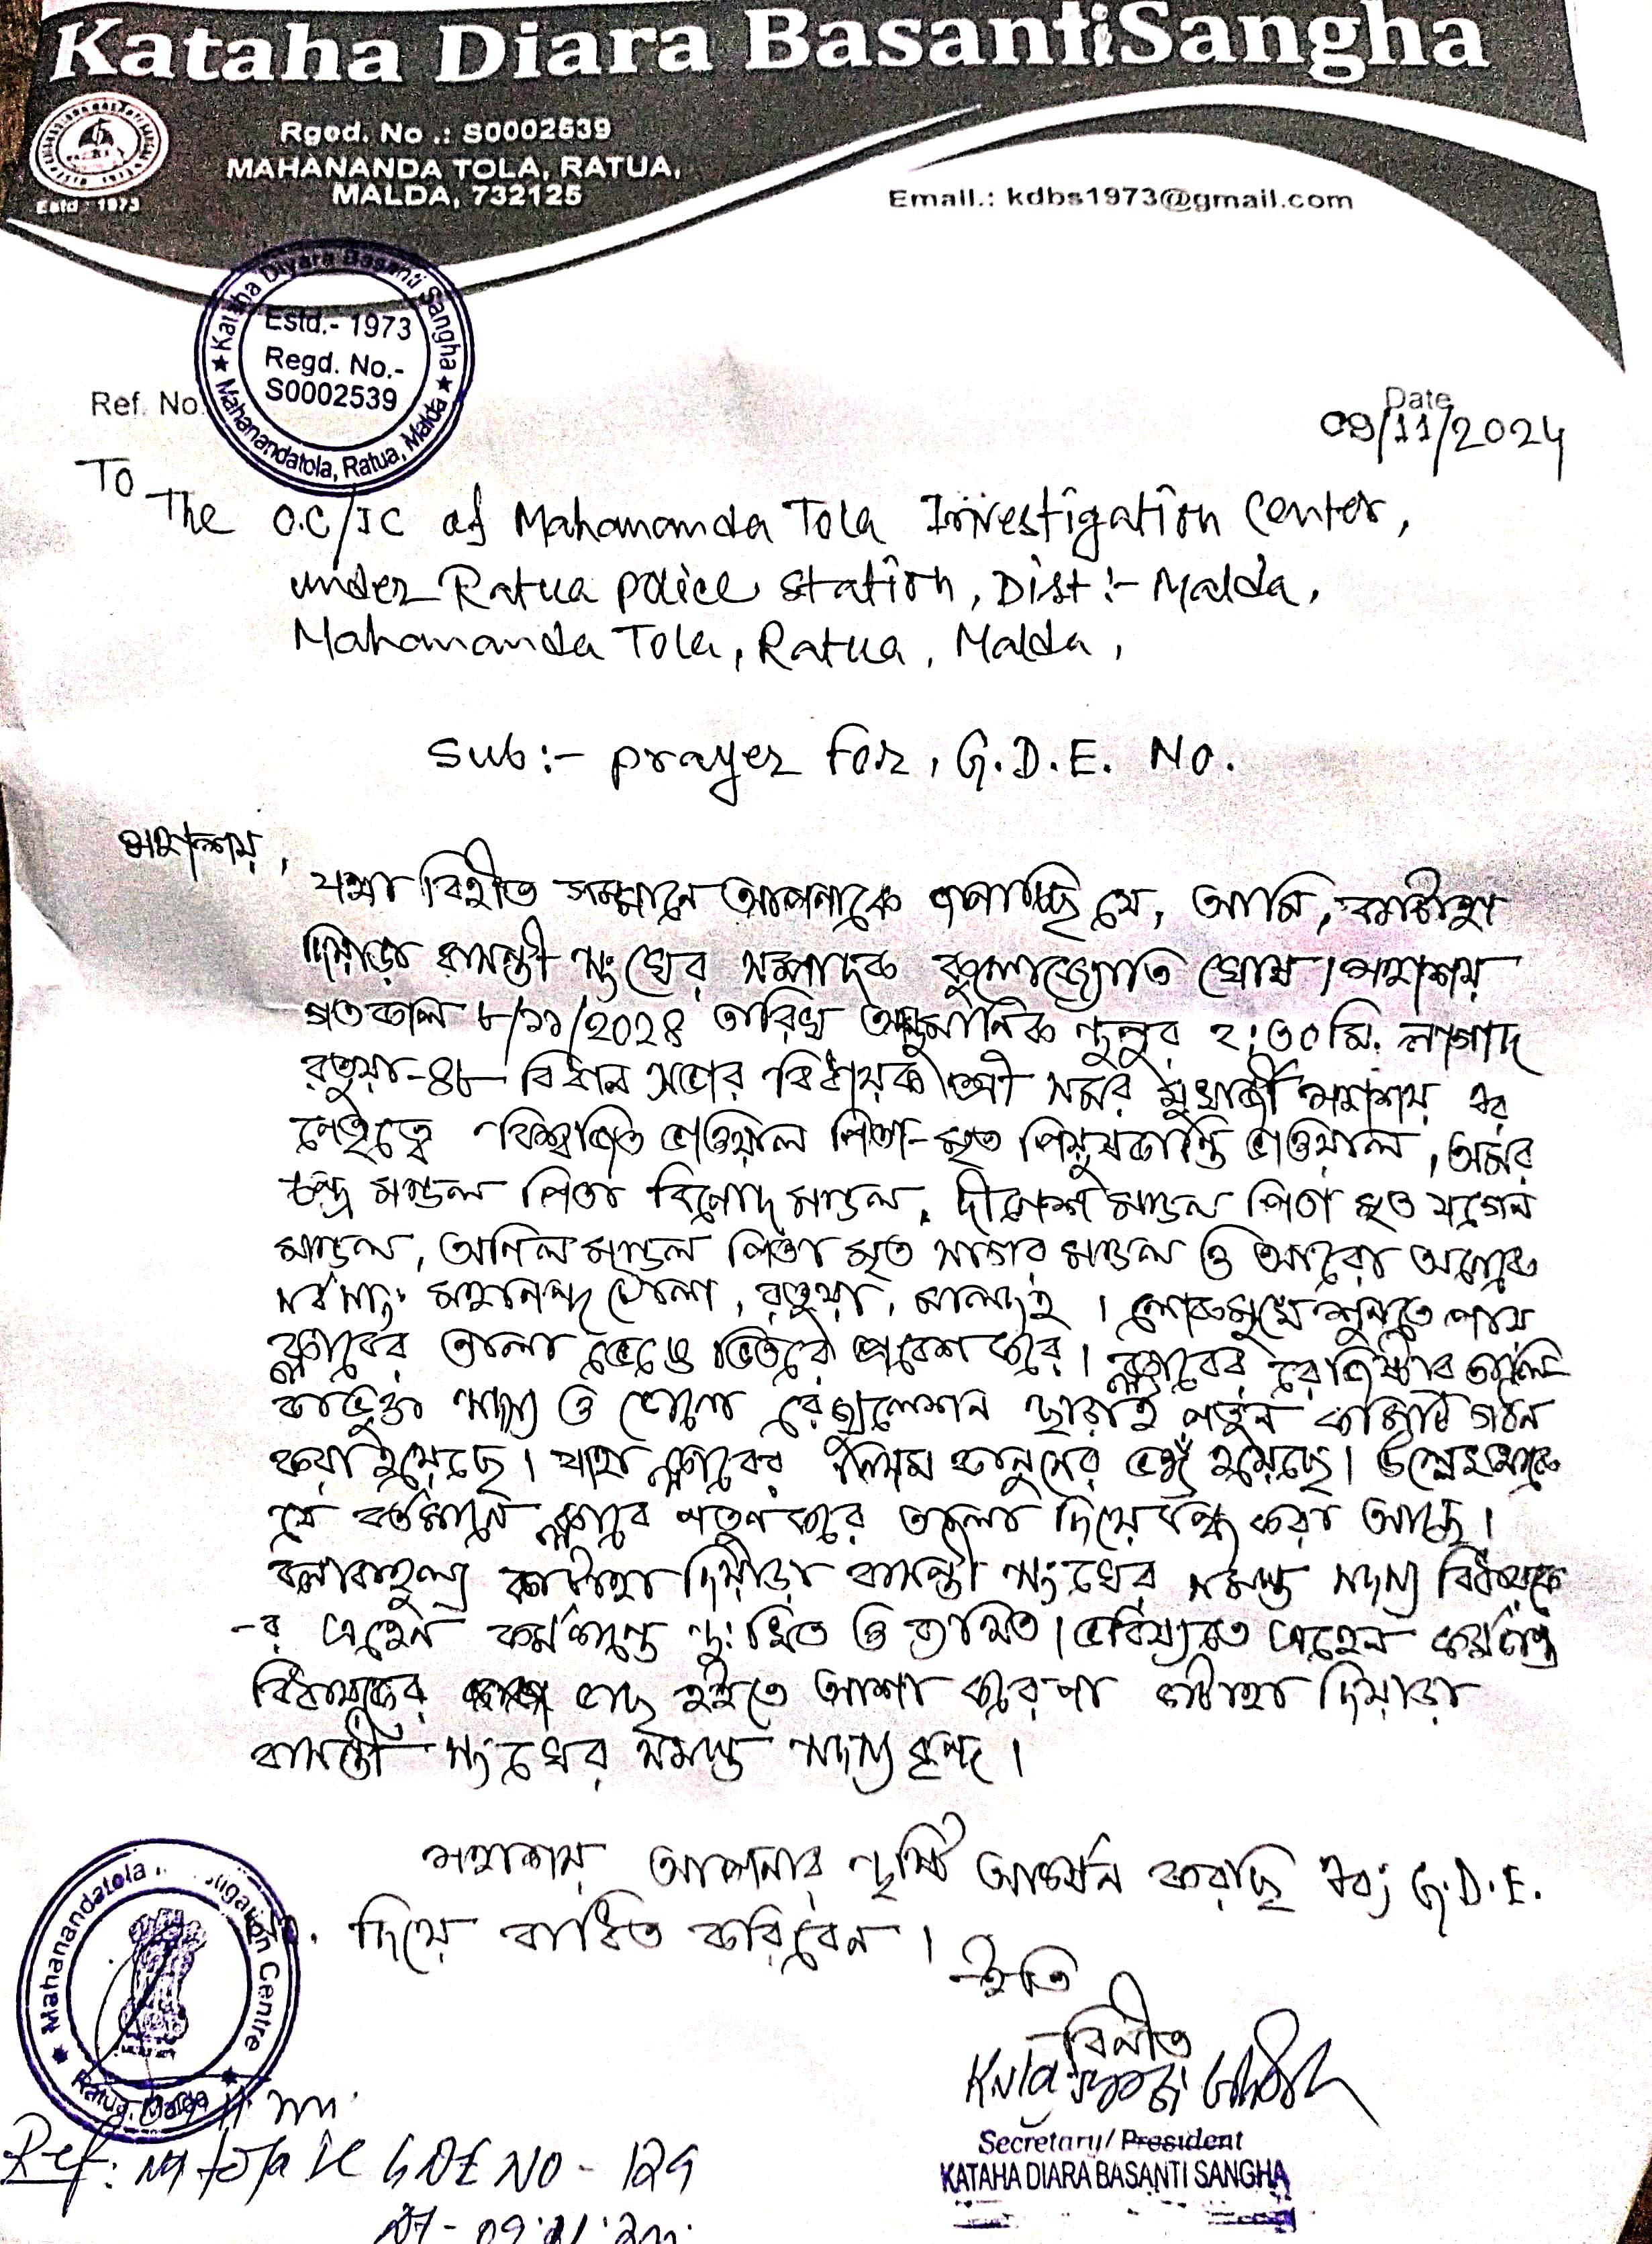 Kataha Diara Basanti Sangha
Rged. No .: S0002539
MAHANANDA TOLA, RATUA,
MALDA, 732125
Estd : 1973
Email.: kdbs1973@gmail.com
Kataha Diyara Basanti Sangha
Estd.- 1973
Regd. No.-
S0002539
Mahanandatola, Ratua, Malda
Ref. No.
Date
09/11/2024
To
The O.C/IC of Mahananda Tola Investigation Center,
under Ratua police station, Dist:- Malda,
Mahananda Tola, Ratua, Malda,
Sub:- prayer for, G.D.E. No.
মহাশয়,
যথা বিহীত সম্মানে আপনাকে জানাচ্ছি যে, আমি, কাটাহা
দিয়াড়া বাসন্তী সংঘের সম্পাদক কুলোজ্যোতি ঘোষ। মহাশয়
গতকাল ৮/১১/২০২৪ তারিখ আনুমানিক দুপুর ২:৩০ মি. নাগাদ
রতুয়া-৪৮ বিধান সভার বিধায়ক শ্রী সমর মুখার্জী মহাশয় এর
নেতৃত্বে বিশ্বজিত ভাওয়াল পিতা-মৃত পিযুষকান্তি ভাওয়াল, অমর
চন্দ্র মন্ডল পিতা বিনোদ মন্ডল, দীনেশ মন্ডল পিতা মৃত যগেন
মন্ডল, অনিল মন্ডল পিতা মৃত সাগর মন্ডল ও আরো অনেকে
সর্ব সাং মহানন্দ টোলা, রতুয়া, মালদহ। লোকমুখে শুনতে পায়
ক্লাবের তালা ভেঙে ভিতরে প্রবেশ করে। ক্লাবের রেজিষ্টার তালি-
কাভুক্ত সদস্য ও কোনো রেজুলেশন ছাড়াই নতুন কমিটি গঠন
করা হয়েছে। যাহা ক্লাবের নিয়ম কানুনের ভঙ্গ হয়েছে। উল্লেখ থাকে
যে বর্তমানে ক্লাবে নতুন করে তালা দিয়ে বন্ধ করা আছে।
বলাবাহুল্য কাটাহা দিয়াড়া বাসন্তী সংঘের সমস্ত সদস্য বিধায়কে
-র এহেন কর্মকান্ডে দুঃখিত ও ব্যথিত। ভবিষ্যতে এহেন কর্মকান্ড
বিধায়কের কাছ হইতে আশা করে না কাটাহা দিয়াড়া
বাসন্তী সংঘের সমস্ত সদস্য বৃন্দ।
মহাশয় আপনার দৃষ্টি আকর্ষন করছি এবং G.D.E.
দিয়ে বাধিত করিবেন।
ইতি
বিনীত
Secretary/ President
KATAHA DIARA BASANTI SANGHA
Mahanandatola Centre
Ratua, Malda
Ref: GDE NO - 129